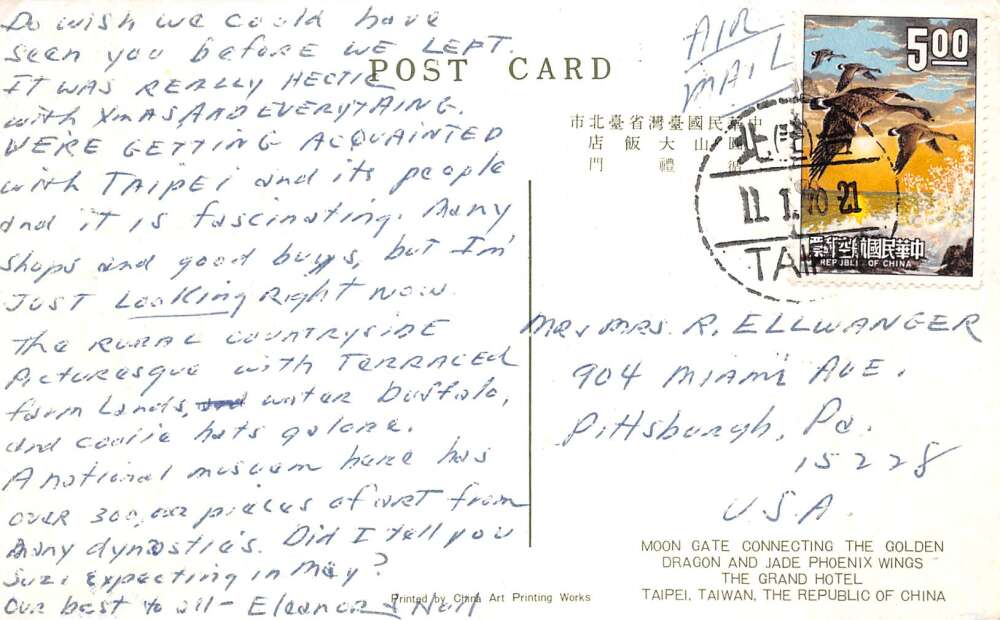 Do wish we could have
seen you before we LEFT.
IT WAS REALLY HECTIC
with XMAS AND EVERYTHING.
WE'RE GETTING ACQUAINTED
with TAIPEI and its people
and it is fascinating. Many
shops and good buys, but I'm
JUST Looking Right Now.
The RURAL COUNTRYSIDE
Picturesque with Terraced
farm lands, and water buffalo,
and coolie hats galore.
A national museum here has
over 300,000 pieces of ART from
many dynastie's. Did I tell you
Suzi expecting in May?
Our best to all - Eleanor &
POST CARD
AIR
MAIL
市北臺省灣臺國民華中
店飯大山圓
門禮
5.00
中華民國航空郵票
REPUBLIC OF CHINA
11. 1. 70 21
TAIPEI
Mr & MRS. R. ELLWANGER
904 MIAMI AVE.
Pittsburgh, Pa.
15228
U.S.A.
MOON GATE CONNECTING THE GOLDEN
DRAGON AND JADE PHOENIX WINGS
THE GRAND HOTEL
TAIPEI, TAIWAN, THE REPUBLIC OF CHINA
Printed by China Art Printing Works